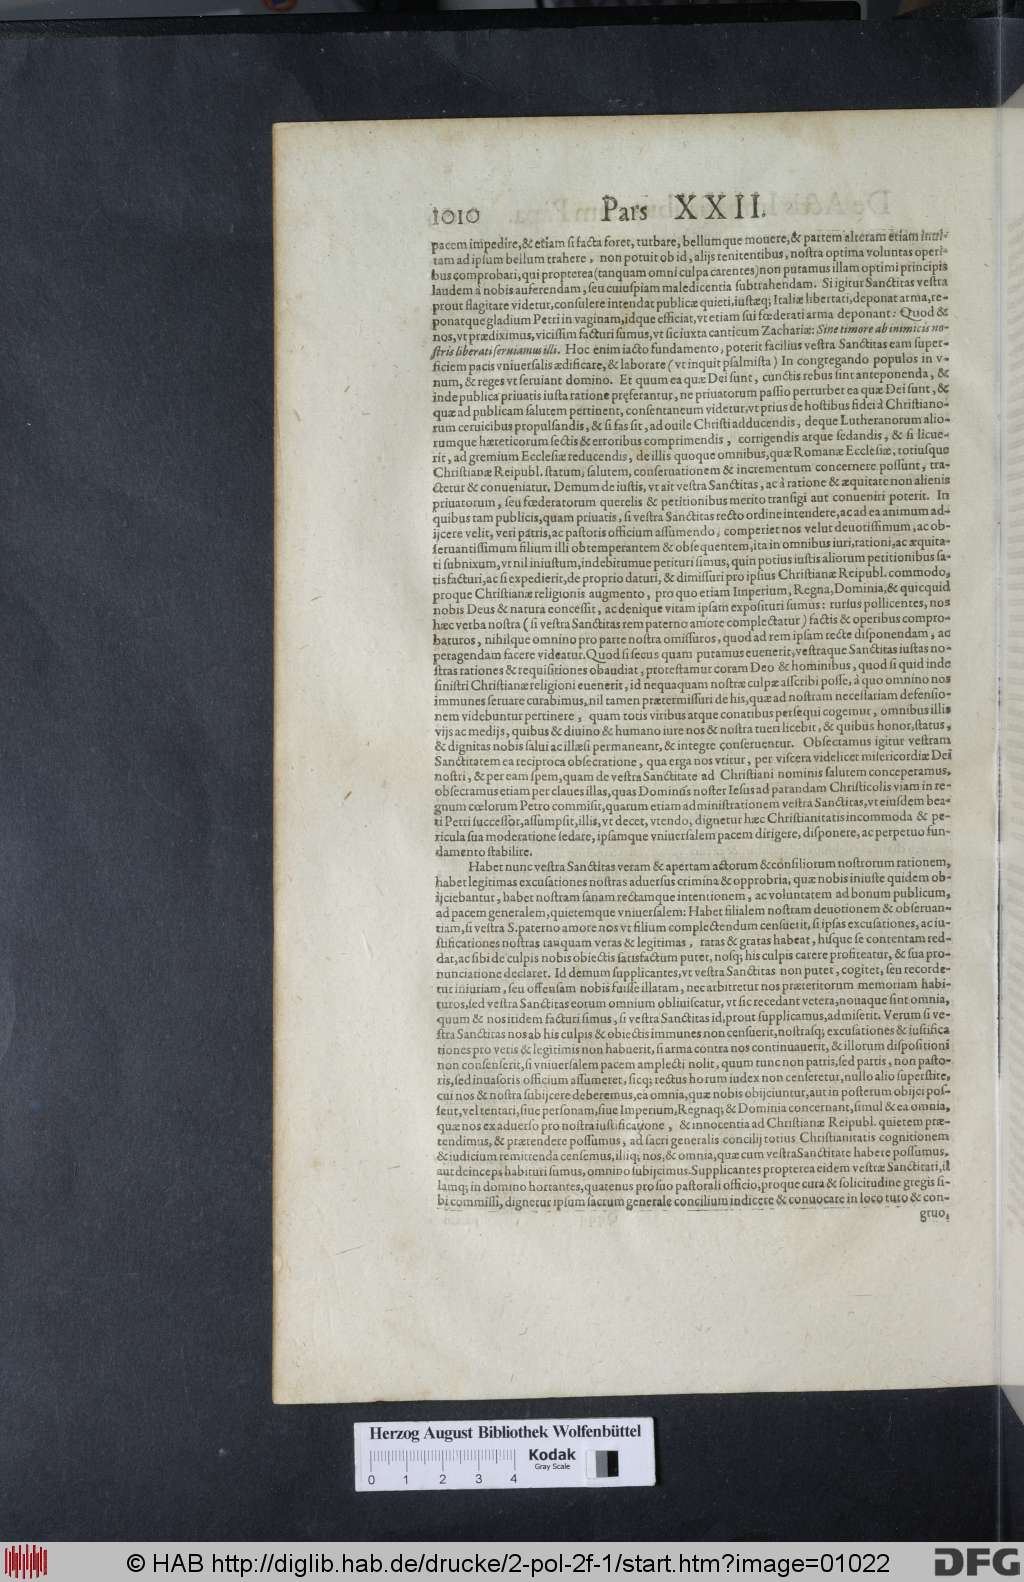 1010 Pars XXII.
pacem impedire,& etiam si facta foret, turbare, bellumque mouere,& partem alteram etiam inui-
tam ad ipsum bellum trahere, non potuit ob id, alijs renitentibus, nostra optima voluntas operi-
bus comprobari, qui propterea (tanquam omni culpa carentes) non putamus illam optimi principis
laudem à nobis auferendam, seu cuiuspiam maledicentia subtrahendam. Si igitur Sanctitas vestra
prout flagitare videtur, consulere intendat publicæ quieti, iustæq; Italiæ libertati, deponat arma, re-
ponatque gladium Petri in vaginam, idque efficiat, vt etiam sui fœderati arma deponant: Quod &
nos, vt prædiximus, vicissim facturi sumus, vt sic iuxta canticum Zachariæ: Sine timore ab inimicis no-
stris liberati seruiamus illi. Hoc enim iacto fundamento, poterit facilius vestra Sanctitas eam super-
ficiem pacis vniuersalis ædificare, & laborate (vt inquit psalmista) In congregando populos in v-
num, & reges vt seruiant domino. Et quum ea quæ Dei sunt, cunctis rebus sint anteponenda, &
inde publica priuatis iusta ratione præferantur, ne priuatorum passio perturbet ea quæ Dei sunt, &
quæ ad publicam salutem pertinent, consentaneum videtur, vt prius de hostibus fidei à Christiano-
rum ceruicibus propulsandis, & si fas sit, ad ouile Christi adducendis, deque Lutheranorum alio-
rumque hæreticorum sectis & erroribus comprimendis, corrigendis atque sedandis, & si licue-
rit, ad gremium Ecclesiæ reducendis, de illis quoque omnibus, quæ Romanæ Ecclesiæ, totiusque
Christianæ Reipubl. statum, salutem, conseruationem & incrementum concernere possunt, tra-
ctetur & conueniatur. Demum de iustis, vt ait vestra Sanctitas, ac à ratione & æquitate non alienis
priuatorum, seu fœderatorum querelis & petitionibus merito transigi aut conueniri poterit. In
quibus tam publicis, quam priuatis, si vestra Sanctitas recto ordine intendere, ac ad ea animum ad-
ijcere velit, veri patris, ac pastoris officium assumendo, comperiet nos velut deuotissimum, ac ob-
seruantissimum filium illi obtemperantem & obsequentem, ita in omnibus iuri, rationi, ac æquita-
ti subnixum, vt nil iniustum, indebitumue petituri simus, quin potius iustis aliorum petitionibus sa-
tisfacturi, ac si expedierit, de proprio daturi, & dimissuri pro ipsius Christianæ Reipubl. commodo,
proque Christianæ religionis augmento, pro quo etiam Imperium, Regna, Dominia, & quicquid
nobis Deus & natura concessit, ac denique vitam ipsam exposituri sumus: rursus pollicentes, nos
hæc verba nostra (si vestra Sanctitas rem paterno amore complectatur) factis & operibus compro-
baturos, nihilque omnino pro parte nostra omissuros, quod ad rem ipsam recte disponendam, ac
peragendam facere videatur. Quod si secus quam putamus euenerit, vestraque Sanctitas iustas no-
stras rationes & requisitiones obaudiat, protestamur coram Deo & hominibus, quod si quid inde
sinistri Christianæ religioni euenerit, id nequaquam nostræ culpæ asscribi posse, à quo omnino nos
immunes seruare curabimus, nil tamen prætermissuri de his, quæ ad nostram necessariam defensio-
nem videbuntur pertinere, quam totis viribus atque conatibus persequi cogemur, omnibus illis
vijs ac medijs, quibus & diuino & humano iure nos & nostra tueri licebit, & quibus honor, status,
& dignitas nobis salui ac illæsi permaneant, & integre conseruentur. Obsectamus igitur vestram
Sanctitatem ea reciproca obsecratione, qua erga nos vtitur, per viscera videlicet misericordiæ Dei
nostri, & per eam spem, quam de vestra Sanctitate ad Christiani nominis salutem conceperamus,
obsecramus etiam per claues illas, quas Dominus noster Iesus ad parandam Christicolis viam in re-
gnum cœlorum Petro commisit, quarum etiam administrationem vestra Sanctitas, vt eiusdem bea-
ti Petri successor, assumpsit, illis, vt decet, vtendo, dignetur hæc Christianitatis incommoda & pe-
ricula sua moderatione sedare, ipsamque vniuersalem pacem dirigere, disponere, ac perpetuo fun-
damento stabilire.
Habet nunc vestra Sanctitas veram & apertam actorum & consiliorum nostrorum rationem,
habet legitimas excusationes nostras aduersus crimina & opprobria, quæ nobis iniuste quidem ob-
ijciebantur, habet nostram sanam rectamque intentionem, ac voluntatem ad bonum publicum,
ad pacem generalem, quietemque vniuersalem: Habet filialem nostram deuotionem & obseruan-
tiam, si vestra S. paterno amore nos vt filium complectendum censuerit, si ipsas excusationes, ac iu-
stificationes nostras tanquam veras & legitimas, ratas & gratas habeat, hisque se contentam red-
dat, ac sibi de culpis nobis obiectis satisfactum putet, nosq; his culpis carere profiteatur, & sua pro-
nunciatione declaret. Id demum supplicantes, vt vestra Sanctitas non putet, cogitet, seu recorde-
tur iniuriam, seu offensam nobis fuisse illatam, nec arbitretur nos præteritorum memoriam habi-
turos, sed vestra Sanctitas eorum omnium obliuiscatur, vt sic recedant vetera, nouaque sint omnia,
quum & nos itidem facturi simus, si vestra Sanctitas id, prout supplicamus, admiserit. Verum si ve-
stra Sanctitas nos ab his culpis & obiectis immunes non censuerit, nostrasq; excusationes & iustifica
tiones pro veris & legitimis non habuerit, si arma contra nos continuauerit, & illorum dispositioni
non consenserit, si vniuersalem pacem amplecti nolit, quum tunc non patris, sed partis, non pasto-
ris, sed inuasoris officium assumeret, sicq; rectus horum iudex non censeretur, nullo alio superstite,
cui nos & nostra subijcere deberemus, ea omnia, quæ nobis obijciuntur, aut in posterum obijci pos-
sent, vel tentari, siue personam, siue Imperium, Regnaq; & Dominia concernant, simul & ea omnia,
quæ nos ex aduerso pro nostra iustificatione, & innocentia ad Christianæ Reipubl. quietem præ-
tendimus, & prætendere possumus, ad sacri generalis concilij totius Christianitatis cognitionem
& iudicium remittenda censemus, illiq; nos, & omnia, quæ cum vestra Sanctitate habere possumus,
aut deinceps habituri sumus, omnino subijcimus. Supplicantes propterea eidem vestræ Sanctitati, il
lamq; in domino hortantes, quatenus pro suo pastorali officio, proque cura & solicitudine gregis si-
bi commissi, dignetur ipsum sacrum generale concilium indicere & conuocare in loco tuto & con-
gruo,
Herzog August Bibliothek Wolfenbüttel
Kodak
Gray Scale
0 1 2 3 4
© HAB http://diglib.hab.de/drucke/2-pol-2f-1/start.htm?image=01022
DFG